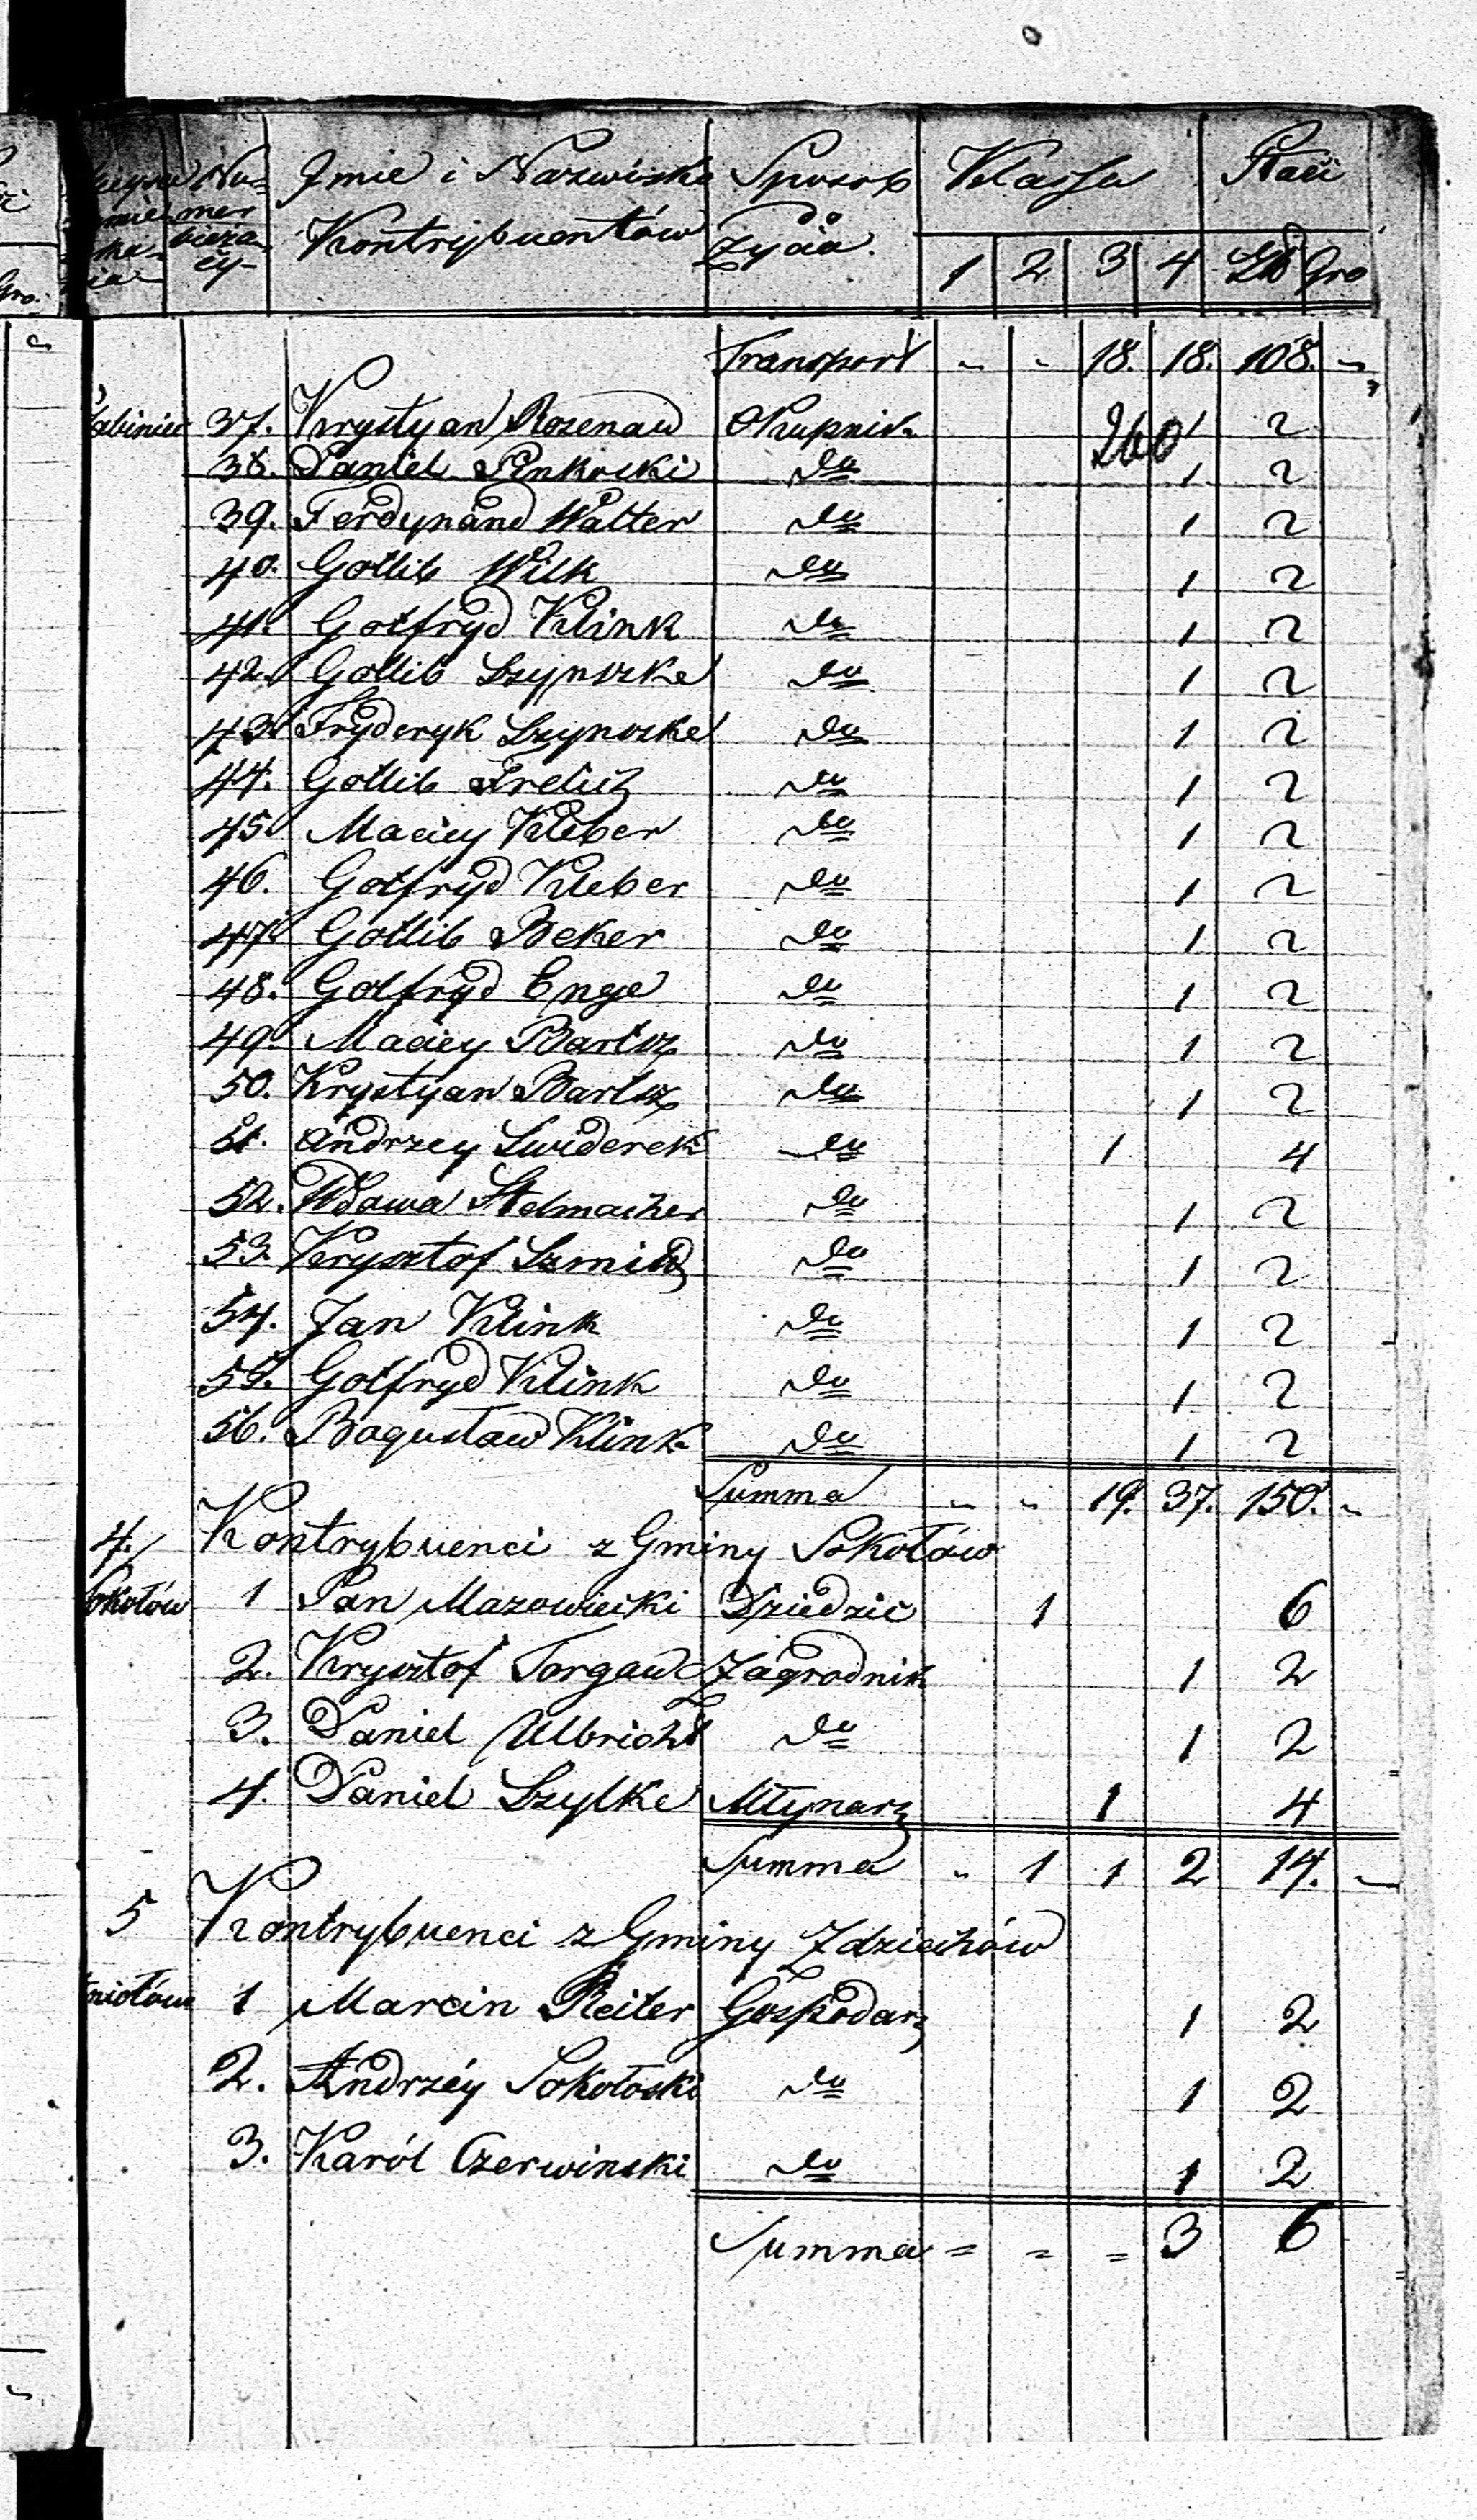 Nu= Imie i Nazwisko Sposob Klassa Płaci
mer Kontrybuentów Życia.
bieżą-
cy- 1 2 3 4 Złł Gro
Transport - - 18. 18. 108. -
37. Krystyan Rosenau Okupnik 1 2
260
38. Daniel Pinkoski do 1 2
39. Ferdynand Walter do 1 2
40. Gotlib Wilk do 1 2
41. Gotfryd Klink do 1 2
42. Gotlib Szynszke do 1 2
43. Fryderyk Szynszke do 1 2
44. Gotlib do 1 2
45. Maciey Kleber do 1 2
46. Gotfryd Kleber do 1 2
47. Gotlib Beker do 1 2
48. Gotfryd Enge do 1 2
49. Maciey Bartsz do 1 2
50. Krystyan Bartsz do 1 2
51. Andrzey Swiderek do 1 4
52. Wdowa Stelmacher do 1 2
53. Krysztof Szmidt do 1 2
54. Jan Klink do 1 2
55. Gotfryd Klink do 1 2
56. Bogusław Klink do 1 2
Summa - - 19. 37. 150. -
4. Kontrybuenci z Gminy Sokołów
Sokołów 1 Pan Mazowiecki Dziedzic 1 6
2. Krysztof Torgau Zagrodnik 1 2
3. Daniel Ulbricht do 1 2
4. Daniel Szylke Młynarz 1 4
Summa - 1 1 2 14. -
5 Kontrybuenci z Gminy Zdziechów
1 Marcin Reiter Gospodarz 1 2
2. Andrzéy Sokołoski do 1 2
3. Karól Czerwinski do 1 2
Summa = = = 3 6